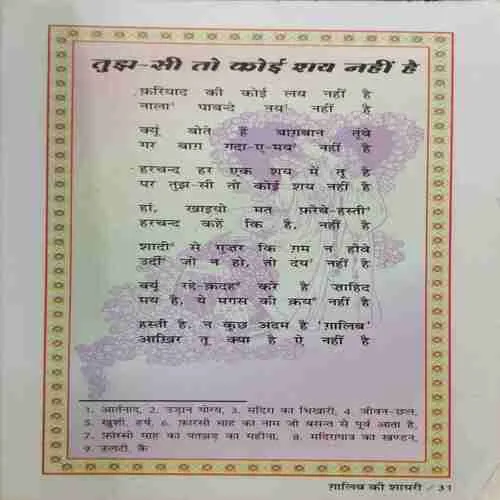 तुझ-सी तो कोई शय नहीं है
फ़रियाद की कोई लय नहीं है
नाला¹ पाबन्दे नय² नहीं है
क्यूं बोते हैं बाग़बान तूंबे
गर बाग़ गदा-ए-मय³ नहीं है
हरचन्द हर एक शय में तू है
पर तुझ-सी तो कोई शय नहीं है
हां, खाइयो मत फ़रेबे-हस्ती⁴
हरचन्द कहें कि है, नहीं है
शादी⁵ से गुज़र कि ग़म न होवे
उर्दी⁶ जो न हो, तो दय⁷ नहीं है
क्यूं रद्दे-क़दह⁸ करे है ज़ाहिद
मय है, ये मगस की क़य⁹ नहीं है
हस्ती है, न कुछ अदम है 'ग़ालिब'
आख़िर तू क्या है ऐ नहीं है
1. आर्तनाद, 2. उड़ान योग्य, 3. मदिरा का भिखारी, 4. जीवन-छल,
5. खुशी, हर्ष, 6. फ़ारसी माह का नाम जो बसन्त से पूर्व आता है,
7. फ़ारसी माह का पतझड़ का महीना, 8. मदिरापात्र का खण्डन,
9. उलटी, क़ै
ग़ालिब की शायरी / 31